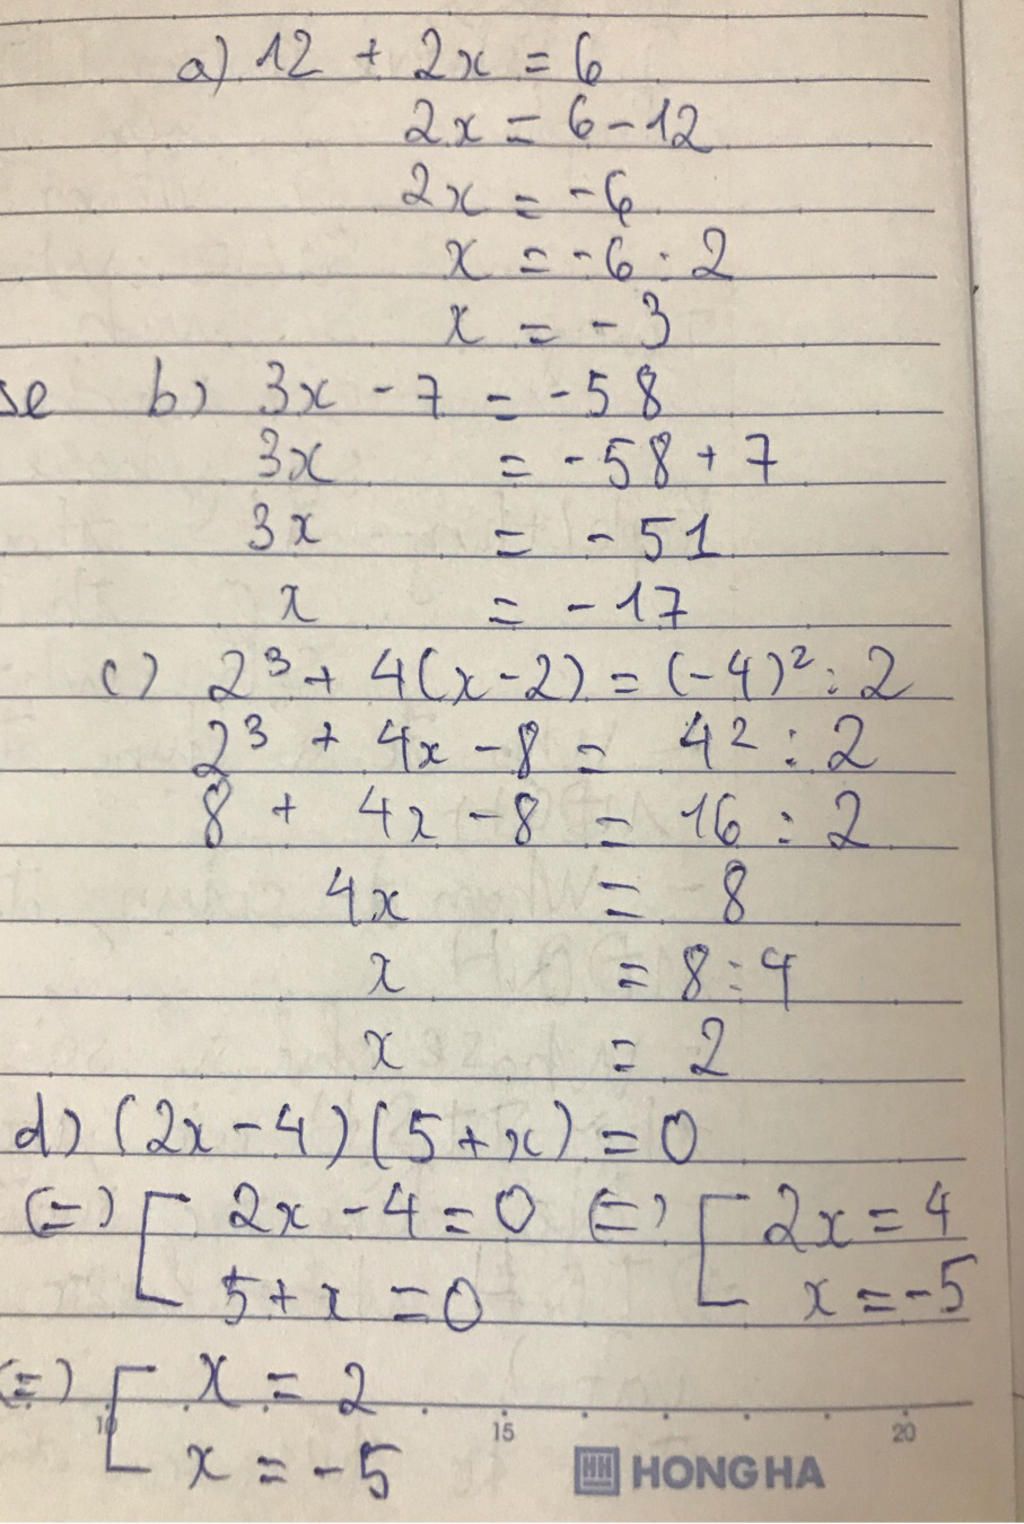 a) 12 + 2x = 6
2x = 6 - 12
2x = -6
x = -6 : 2
x = -3
se b) 3x - 7 = -58
3x = -58 + 7
3x = -51
x = -17
c) 2³ + 4(x - 2) = (-4)² : 2
2³ + 4x - 8 = 4² : 2
8 + 4x - 8 = 16 : 2
4x = 8
x = 8 : 4
x = 2
d) (2x - 4)(5 + x) = 0
(=) [ 2x - 4 = 0 (=) [ 2x = 4
5 + x = 0 x = -5
(=) [ x = 2
10 15 20
x = -5 HH HONG HA